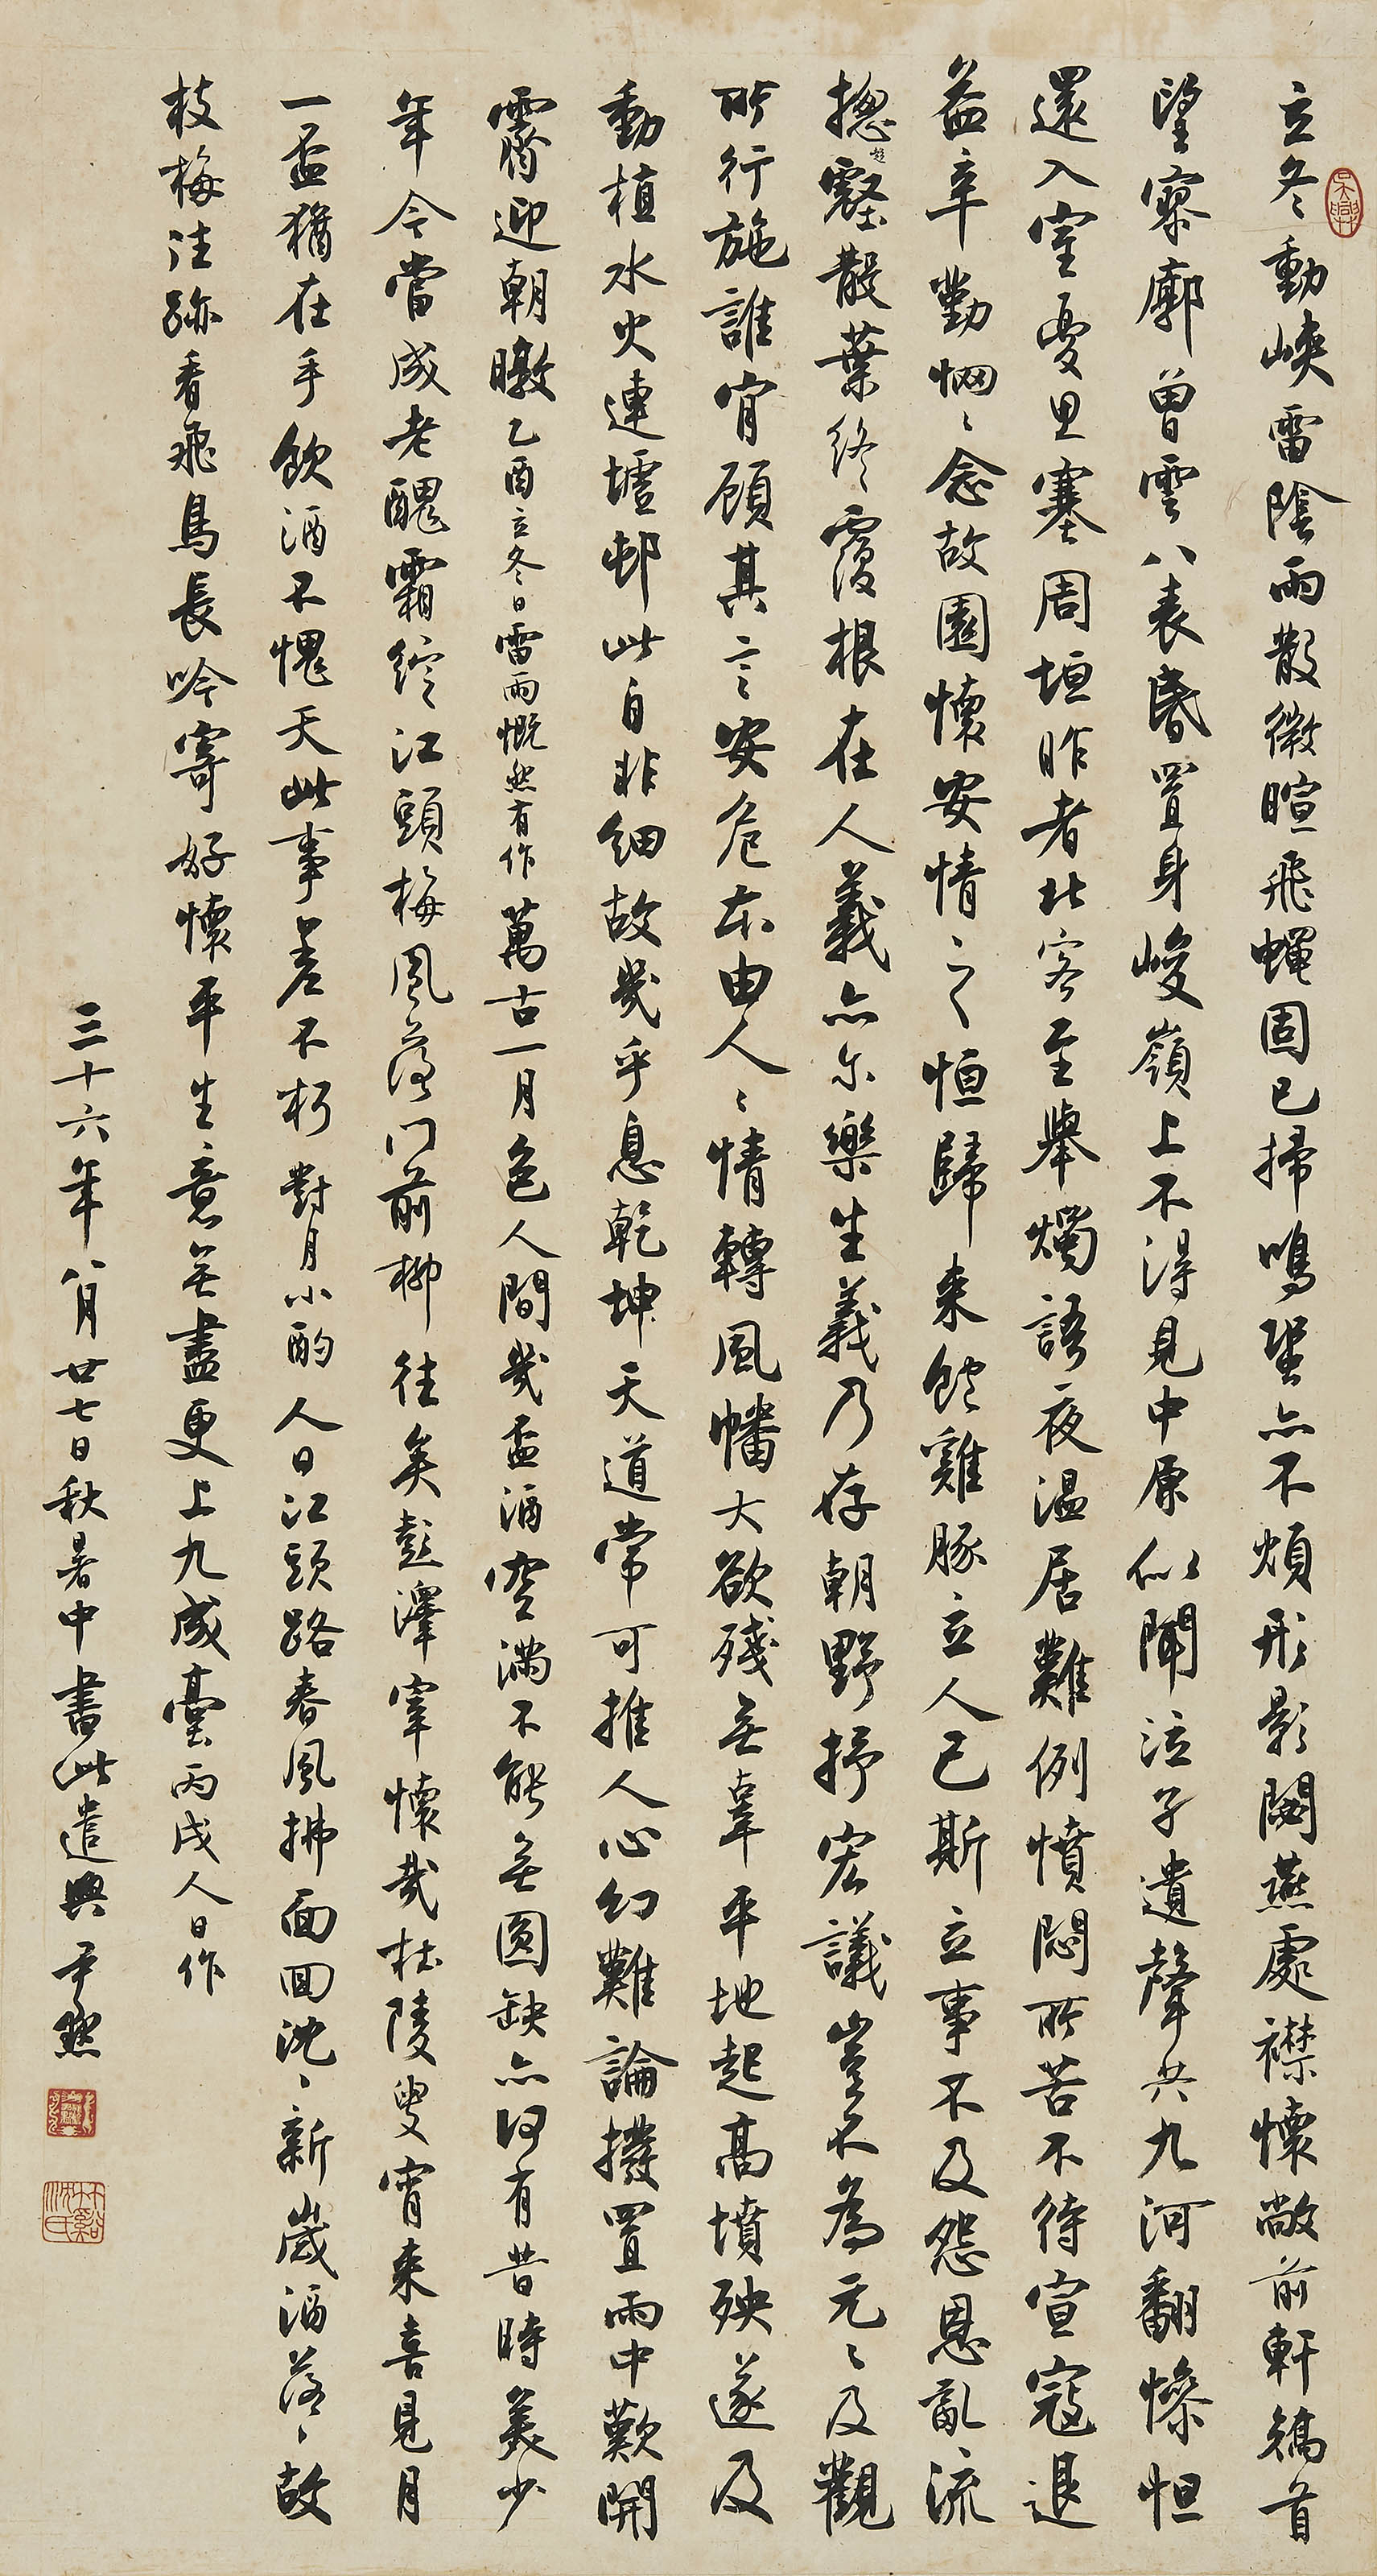 立冬動峽雷陰雨散微暄飛蠅固已掃鳴蛩亦不煩形影闕燕處襟懷敞前軒矯首
望寥廓曾雲八表昏置身峻嶺上不得見中原似聞泣孑遺聲共九河翻慘怛
還入室憂思塞周垣昨者北客至舉燭語夜溫居難例憤悶所苦不待宣寇退
益辛勤惘〻念故園懷安情之恒歸來飽雞豚立人已斯立事不及怨恩亂流
揔壑散葉終覆根在人義亦尔樂生義乃存朝野抒宏議豈不為元〻及觀
所行施誰肯顧其言安危本由人〻情轉風幡大欲殘無辜平地起高墳殃遂及
動植水火連墟邨此自非細故幾乎息乾坤天道常可推人心幻難論撥置雨中歎開
霽迎朝暾乙酉立冬日雷雨慨然有作萬古一月色人間幾盃酒空滿不能無圓缺亦何有昔時美少
年今當成老醜霜綻江頭梅風落門前柳往矣彭澤宰懷哉杜陵叟宵來喜見月
一盃猶在手飲酒不愧天此事差不朽對月小酌人日江頭路春風拂面回沈〻新歲酒落〻故
枝梅注跡看飛鳥長吟寄好懷平生意無盡更上九成臺丙戌人日作
三十六年八月廿七日秋暑中書此遣興尹默
吳興
竹谿沈氏